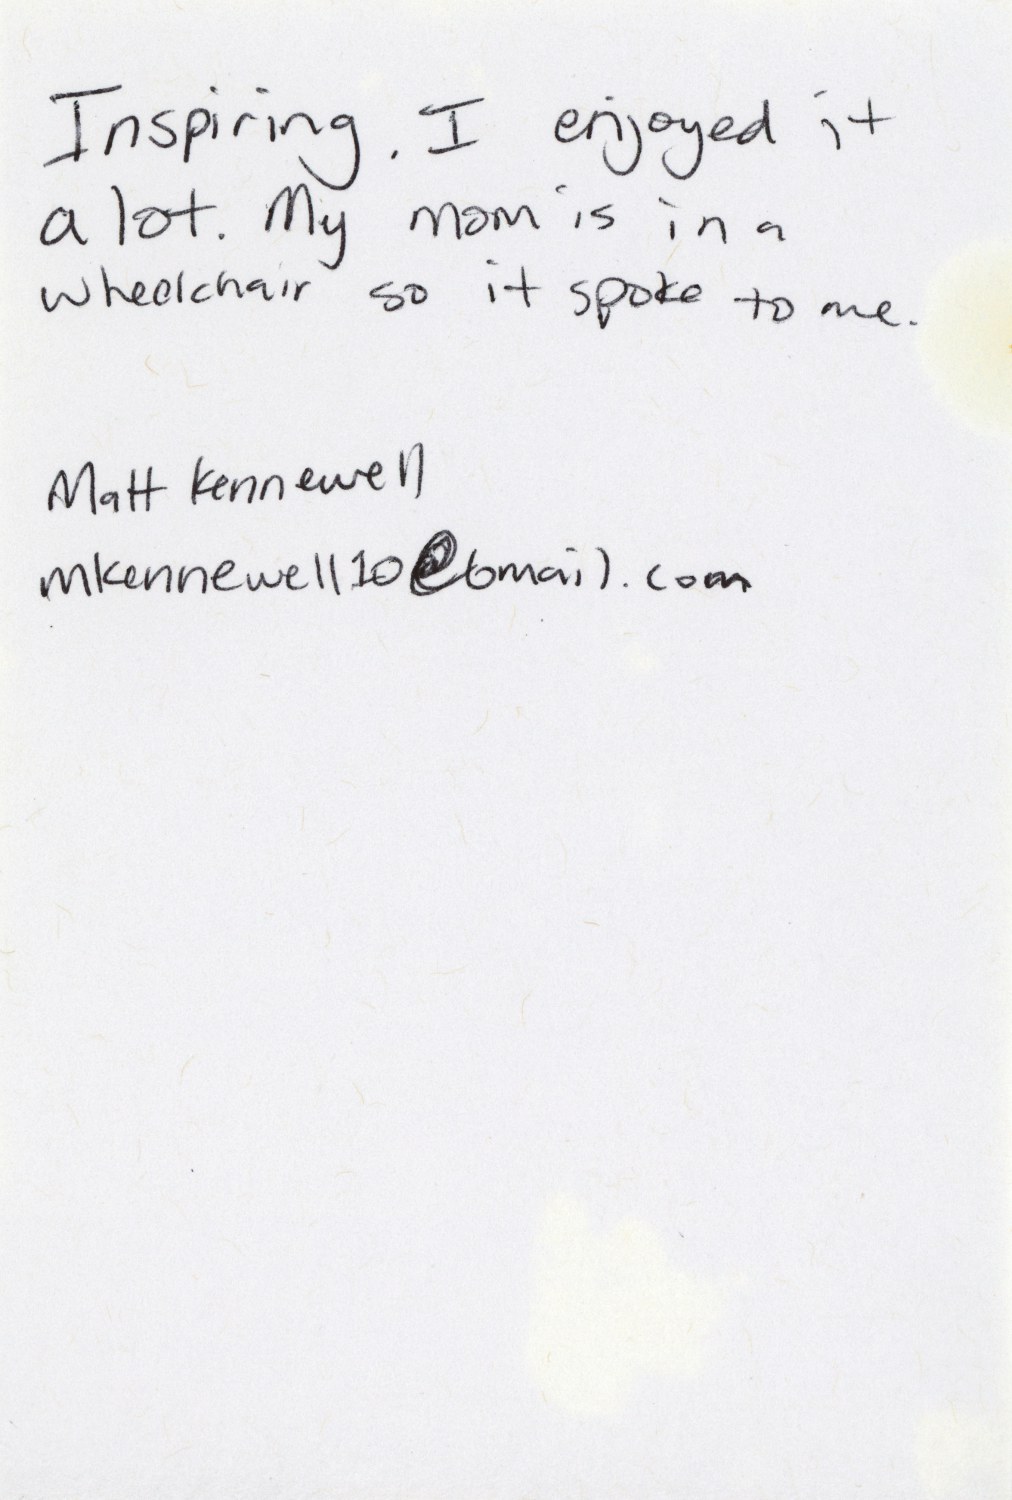 Inspiring. I enjoyed it
a lot. My mom is in a
wheelchair so it spoke to me.
Matt Kennewell
mkennewell10@Gmail.com